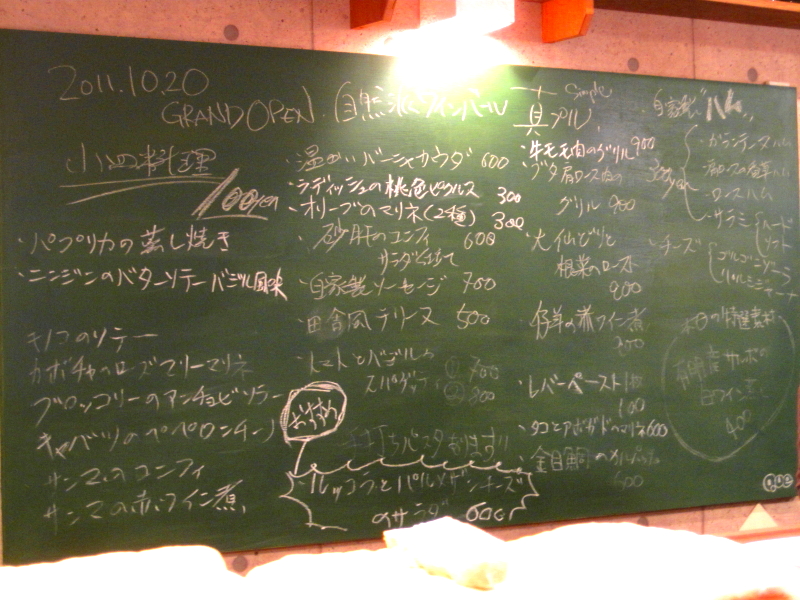 2011.10.20
GRAND OPEN. 自然派ワインバル
Simple
真プル
小皿料理
100yen
・パプリカの蒸し焼き
・ニンジンのバターソテー バジル風味
キノコのソテー
カボチャのローズマリーマリネ
ブロッコリーのアンチョビソテー
キャベツのペペロンチーノ
サンマのコンフィ
サンマの赤ワイン煮
・温かいバーニャカウダ 600
・ラディッシュの桃色ピクルス 300
・オリーブのマリネ(2種) 300
・砂肝のコンフィ 600
サラダ仕立て
・自家製ソーセージ 700
・田舎風テリーヌ 500
・トマトとバジルの ① 700
スパゲッティ ② 800
おすすめ
手打ちパスタあります!!
・ルッコラとパルメザンチーズ
のサラダ 600
・牛モモ肉のグリル 900
・ブタ肩ロース肉の
グリル 900
・大仙どりと
根菜のロースト
900
・仔羊の赤ワイン煮
・レバーペースト
100
・タコとアボガドのマリネ 600
・金目鯛の
600
自家製ハム
300yen
ロースハム
・サラミ
ハード
ソフト
・チーズ
ゴルゴンゾーラ
パルミジャーノ
の特選素材
白ワイン蒸し
400
Que